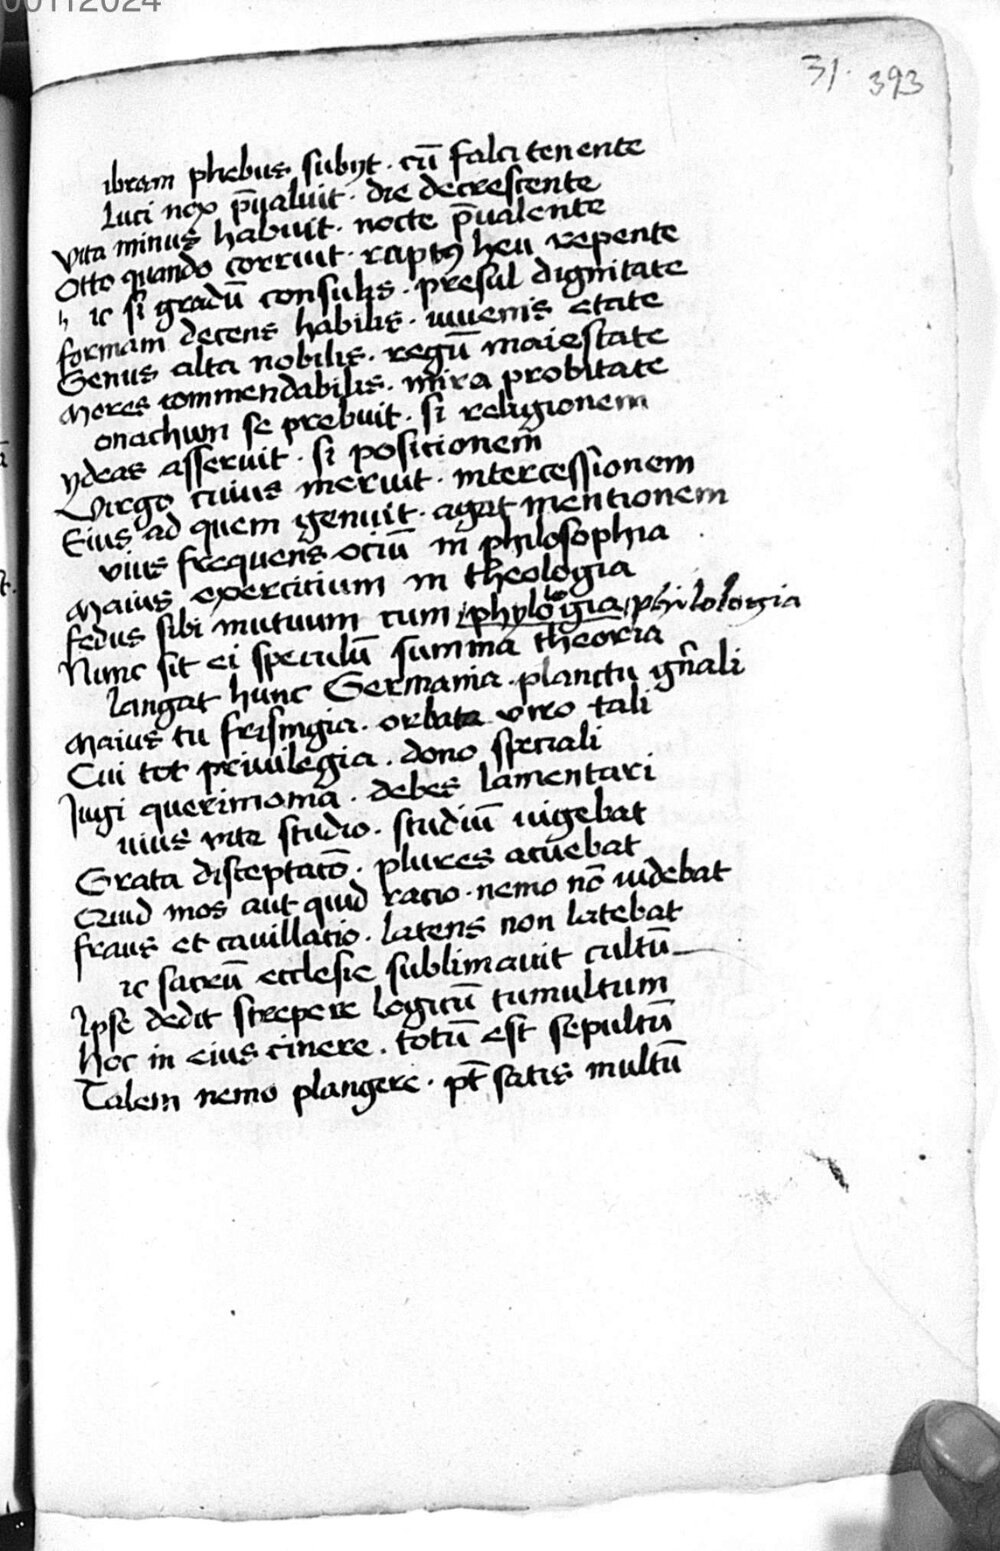 00112024
31. 393
ibram phebus subijt. cū falci tenente
Luci nox p̄ualuit. die decrescente
Vita minus habuit. nocte p̄ualente
Otto quando corruit. raptꝰ heu repente
h ic si gradū consulis. presul dignitate
formam decens habilis. iuuenis etate
Genus alta nobilis. regū maiestate
Mores commendabilis. mira probitate
onachum se prebuit. si religionem
ydeas asseruit. si posicionem
Virgo cuius meruit. intercessionem
Eius ad quem genuit. agat mentionem
uius frequens ociū in philosophia
Maius exercitium in theologia
fedus sibi mutuum cum phylogia philologia
lo
Nunc sit ei speculū summa theoria
langat hunc Germania. planctu gn̄ali
Maius tu frisingia. orbata viro tali
Cui tot priuilegia. dono speciali
Iugi querimonia. debes lamentari
uius vite studio. studiū uigebat
Grata disceptatō. plures acuebat
Quid mos aut quid racio. nemo nō uidebat
fraus et cauillatio. latens non latebat
ic sacrū ecclesie sublimauit cultū
Ipse dedit strepere logicū tumultum
Hoc in eius cinere. totū est sepultū
Talem nemo plangere. pt̄ satis multū